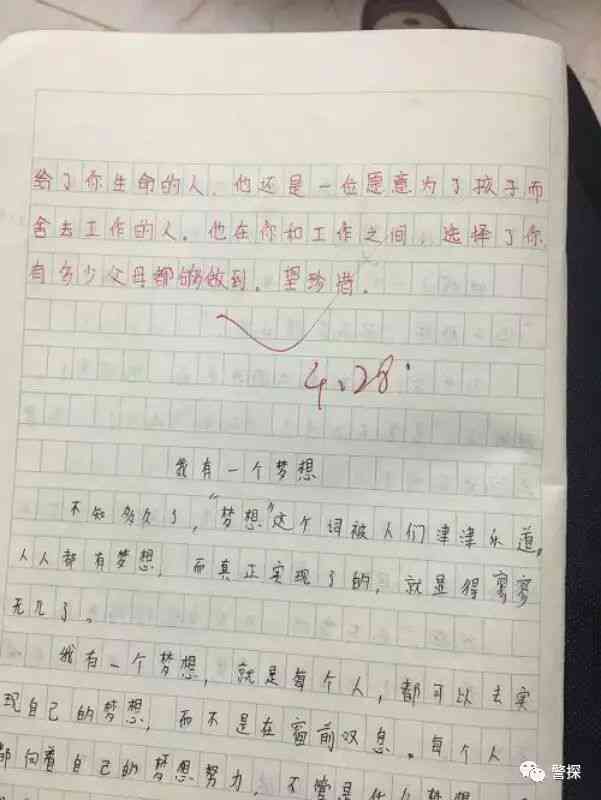 给了你生命的人，他还是一位愿意为了孩子而
舍去工作的人。他在你和工作之间，选择了你
有多少父母都能够做到。望珍惜。
4.28
我有一个梦想
不知多久了，“梦想”这个词被人们津津乐道。
人人都有梦想，而真正实现了的，就显得寥寥
无几了。
我有一个梦想，就是每个人，都可以去实
现自己的梦想，而不是在窗前叹息。每个人
都向着自己的梦想努力，不管是什么梦想
警探